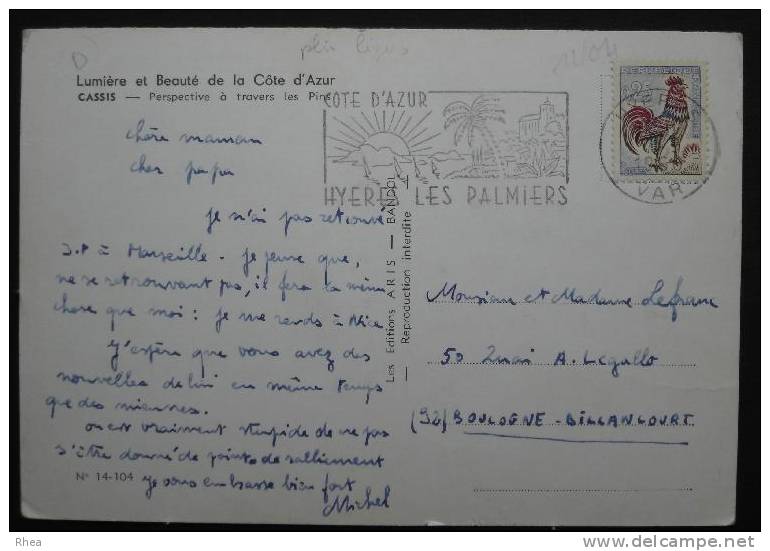 Lumière et Beauté de la Côte d'Azur
CASSIS — Perspective à travers les Pins
COTE D'AZUR
HYERES LES PALMIERS
VAR
chère maman
cher papa
je n'ai pas retrouvé
J.P à Marseille - je pense que,
ne se retrouvant pas, il fera la même
chose que moi : je me rends à Nice.
J'espère que vous avez des
nouvelles de lui en même temps
que des miennes.
on est vraiment stupide de ne pas
s'être donné de points de ralliement
je vous embrasse bien fort
Michel
N° 14-104
Les Editions ARIS — BANDOL
Reproduction interdite
Monsieur et Madame Lefranc
50 Quai A. Legallo
(92) BOULOGNE-BILLANCOURT
Rhea
delcampe.net